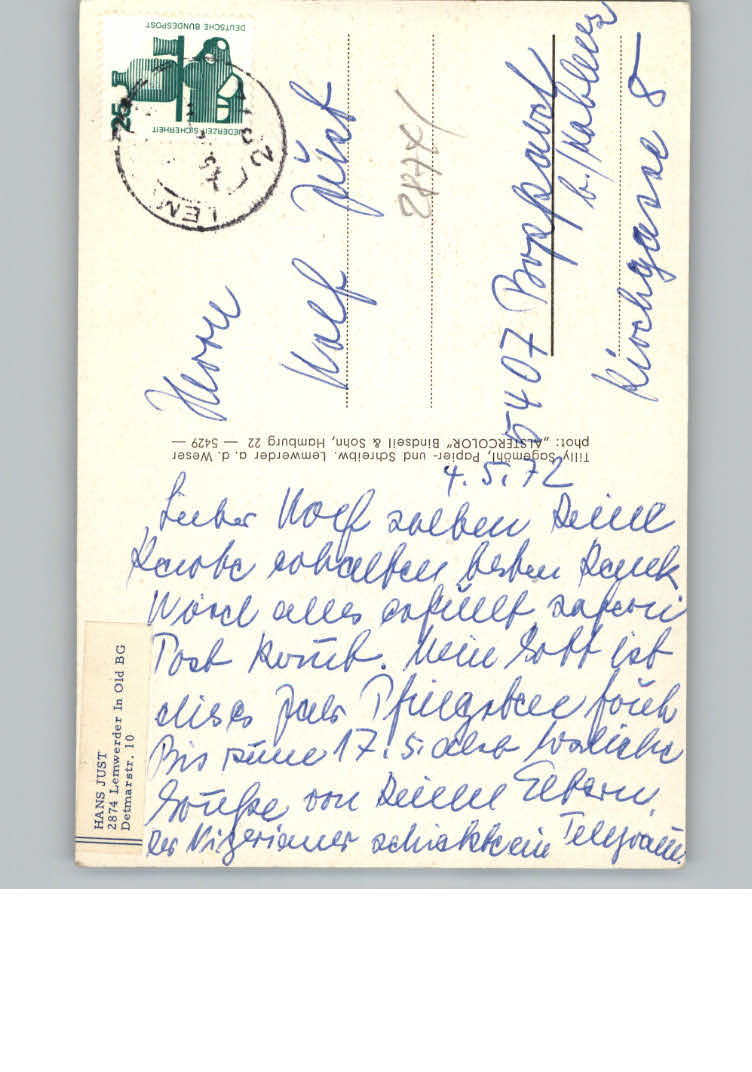 DEUTSCHE BUNDESPOST
JEDERZEIT SICHERHEIT
25
LEM
Herrn
Rolf Just
2874/
5407 Boppard
b./Koblenz
Kirchgasse 8
Tilly Sagemöhl, Papier- und Schreibw. Lemwerder a. d. Weser
phot: „ALSTERCOLOR" Bindseil & Sohn, Hamburg 22 — 5429 —
4.5.72
Lieber Rolf soeben Deine
Karte erhalten besten Dank
Wird alles erfüllt sofern
Post kommt. Mein Gott ist
dieses Jahr Pfingsten früh
Bis zum 17.5. also herzliche
Grüße von Deinen Eltern.
Der Nigerianer schickt ein Telegramm.
HANS JUST
2874 Lemwerder In Old BG
Detmarstr. 10